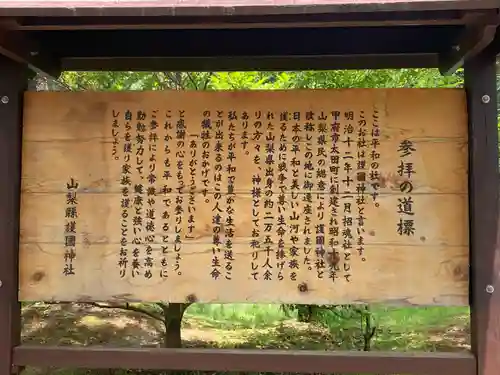 参拝の道標
ここは平和の社です。
このお社は護國神社と言います。
明治十二年十一月招魂社として
甲府市太田町に創建され昭和十九年
山梨県民の総意により護国神社と
改称しこの地に御遷座されました。
日本の平和と美しい山河や家族を
護るために戦争で尊い生命を捧げら
れた山梨県出身の約二万五千人余
りの方々を、神様としてお祀りして
あります。
私たちが平和で豊かな生活を送るこ
とが出来るのはこの人達の尊い生命
の犠牲のおかげです。
「ありがとうございます」
と感謝の心をもってお参りしましょう。
これからも平和であるとともに
ご参拝により常識や道徳心を高め
勤勉努力して健康と強い心を養い
自らを護り家族を護ることをお祈り
しましょう。
山梨縣護國神社